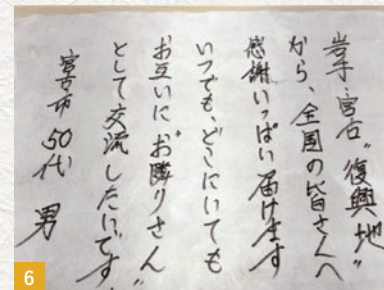 岩手・宮古〝復興地〟
から、全国の皆さんへ
感謝いっぱい届けます
いつでも、どこにいても
お互いに〝お隣りさん〟
として交流したいです。
宮古市 50代 男
6